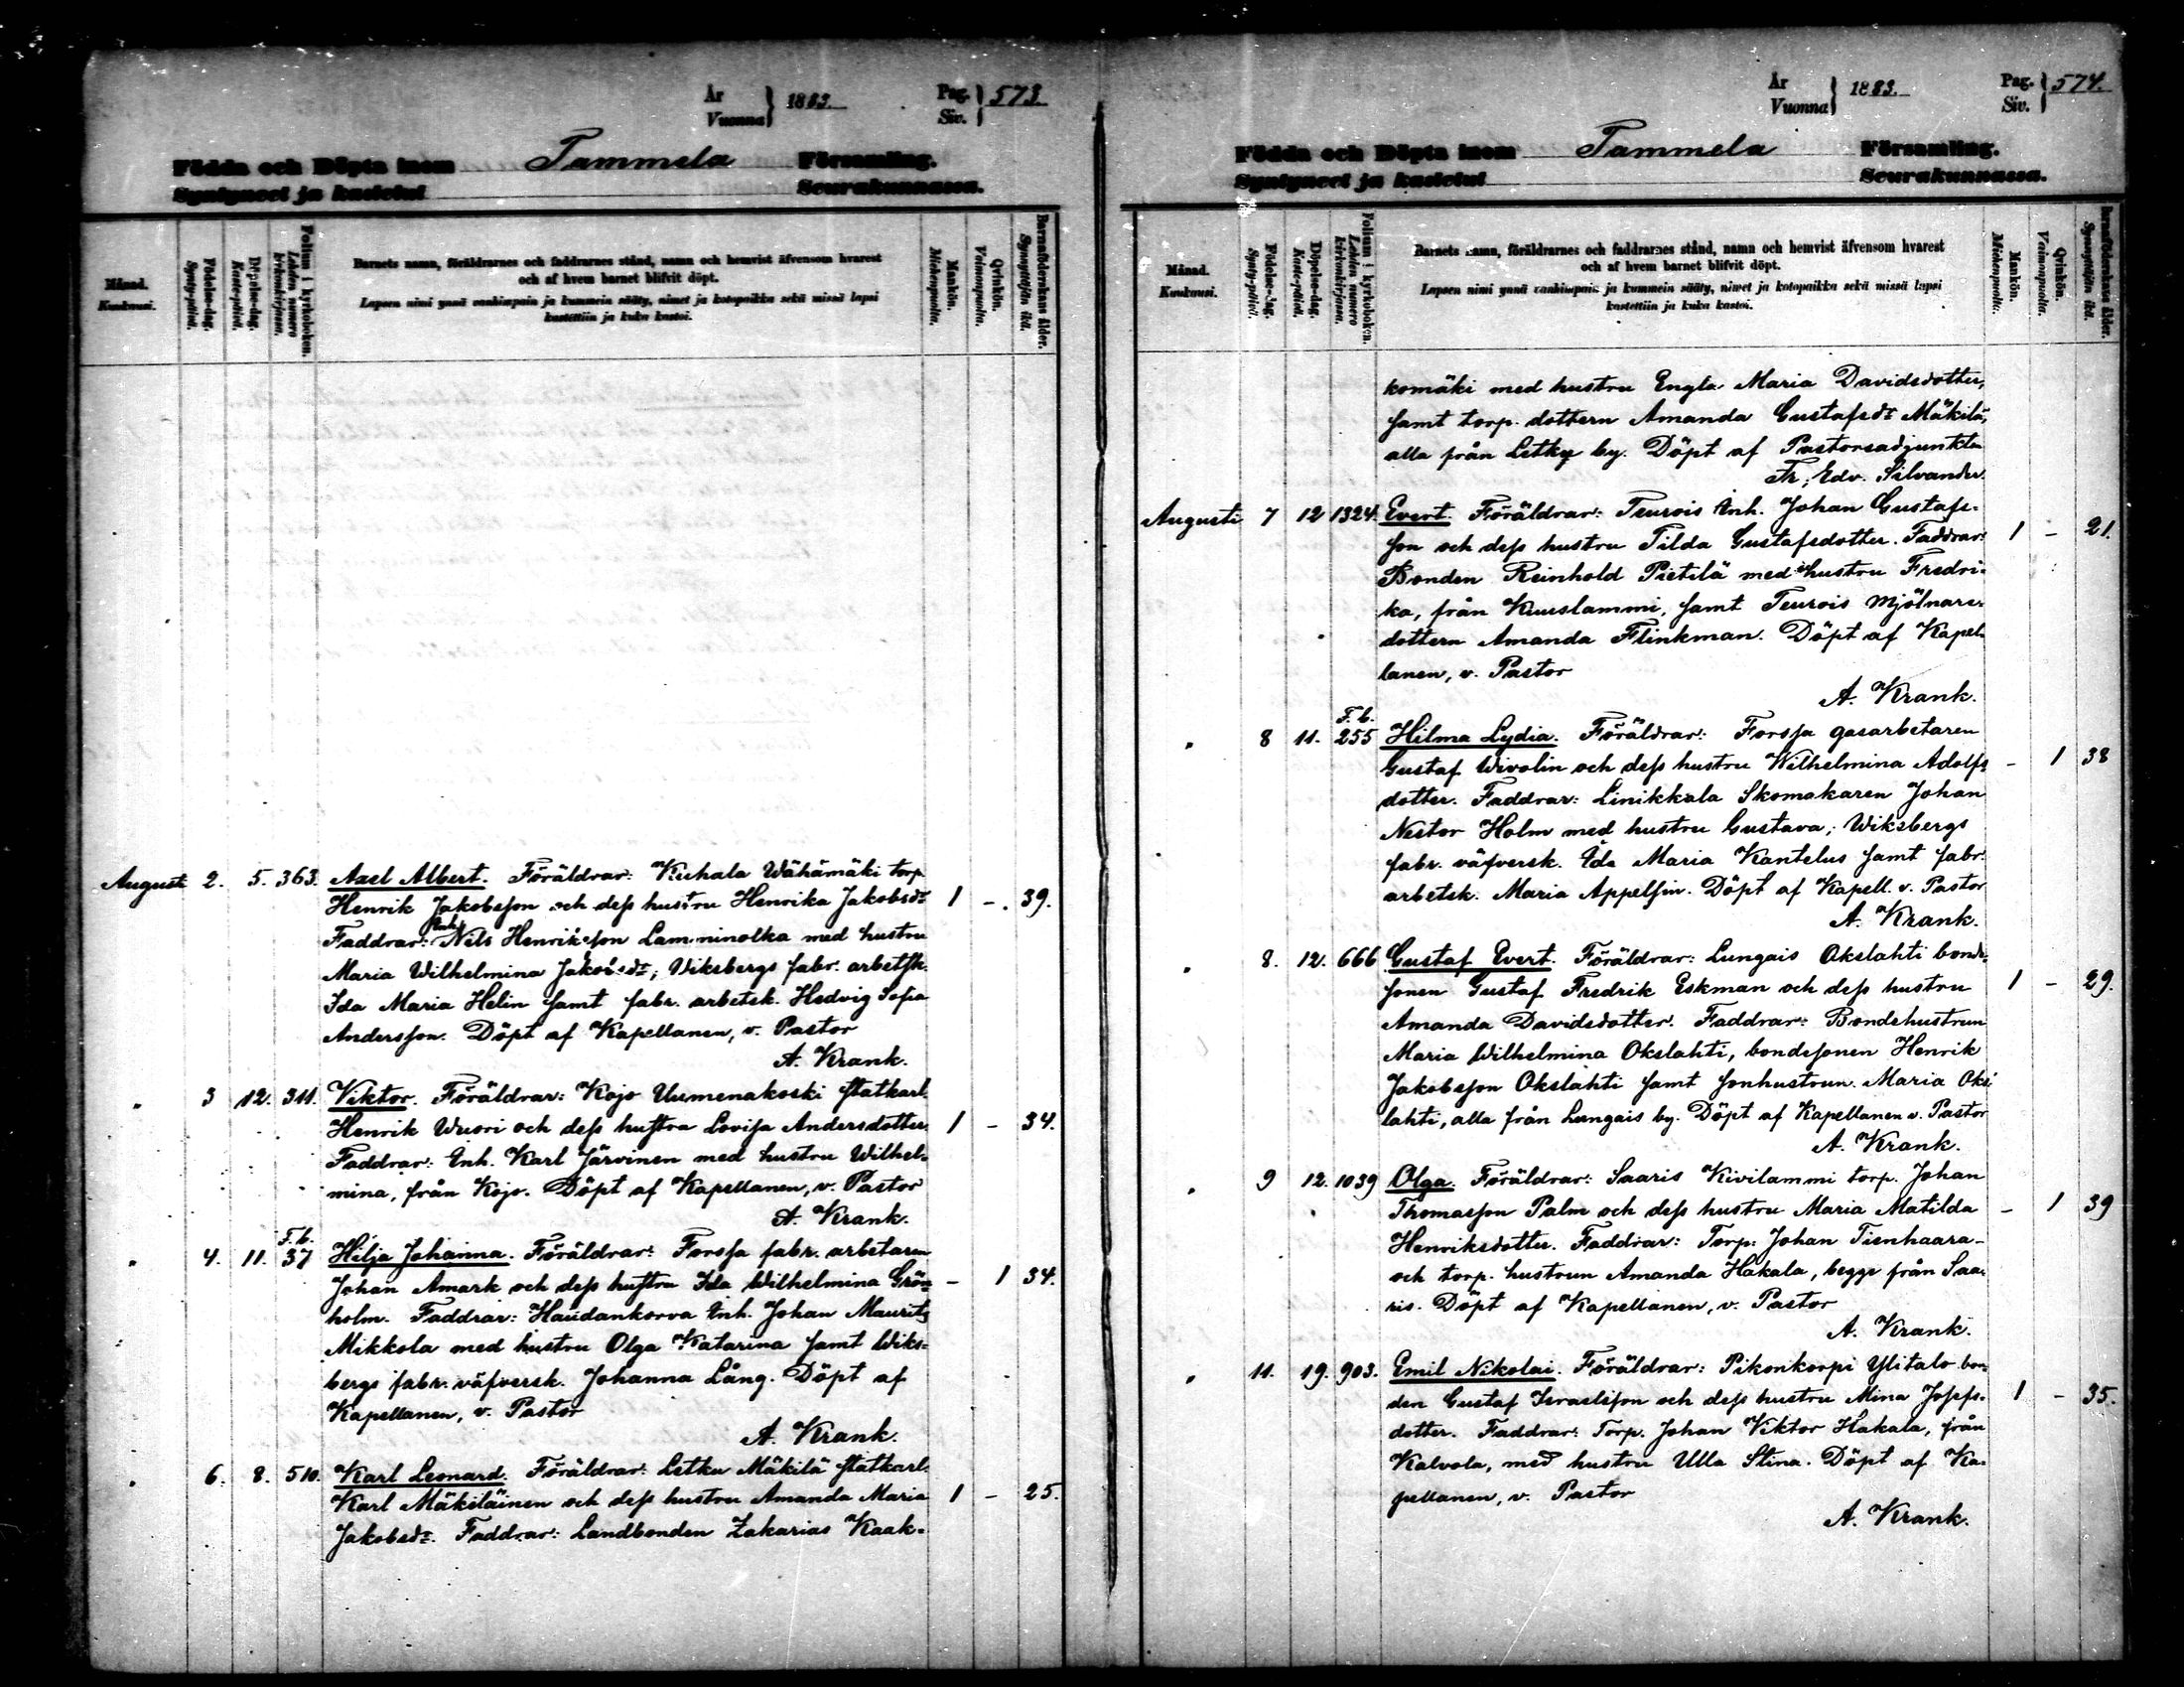 År Vuonna } 1883. Pag. Siv. } 573.
Födda och Döpta inom Tammela Församling.
Syntyneet ja kastetut Seurakunnassa.
Månad. Kuukausi.
Födelse-dag. Synty-päivä.
Döpelse-dag. Kaste-päivä.
Folium i kyrkoboken. Lehden numero kirkonkirjassa.
Barnets namn, föräldrarnes och faddrarnes stånd, namn och hemvist äfvensom hvarest
och af hvem barnet blifvit döpt.
Lapsen nimi ynnä vanhimpain ja kummein sääty, nimet ja kotopaikka sekä missä lapsi
kastettiin ja kuka kastoi.
Mankön. Miehenpuolta.
Qvinkön. Vaimonpuolta.
Barnaföderskans ålder. Synnyttäjän ikä.
Augusti 2. 5. 363. Axel Albert. Föräldrar: Kuhala Wähämäki torp.
Henrik Jakobsson och dess hustru Henrika Jakobsdr 1 - 39.
Faddrar: Inh. Nils Henriksson Lamminolka med hustru
Maria Wilhelmina Jakobsdr; Wiksbergs fabr. arbetsk.
Ida Maria Helin samt fabr. arbetsk. Hedvig Sofia
Andersson. Döpt af Kapellanen, v. Pastor
A. Krank.
" 3 12. 311. Viktor. Föräldrar: Kojo Uumenakoski statkarl.
Henrik Wuori och dess hustru Lovisa Andersdotter. 1 - 34.
Faddrar: Inh. Karl Järvinen med hustru Wilhel-
mina, från Kojo. Döpt af Kapellanen, v. Pastor
A. Krank.
F. b.
" 4. 11. 37 Hilja Johanna. Föräldrar: Forssa fabr. arbetaren
Johan Amark och dess hustru Ida Wilhelmina Grön- - 1 34.
holm. Faddrar: Haudankorva Inh. Johan Maurits
Mikkola med hustru Olga Katarina samt Wiks-
bergs fabr. väfversk. Johanna Lång. Döpt af
Kapellanen, v. Pastor
A. Krank.
" 6. 8. 510. Karl Leonard. Föräldrar: Letku Mäkilä statkarl.
Karl Mäkiläinen och dess hustru Amanda Maria 1 - 25.
Jakobsdr. Faddrar: Landbonden Zakarias Kaak-
År Vuonna } 1883. Pag. Siv. } 574.
Födda och Döpta inom Tammela Församling.
Syntyneet ja kastetut Seurakunnassa.
Månad. Kuukausi.
Födelse-dag. Synty-päivä.
Döpelse-dag. Kaste-päivä.
Folium i kyrkoboken. Lehden numero kirkonkirjassa.
Barnets namn, föräldrarnes och faddrarnes stånd, namn och hemvist äfvensom hvarest
och af hvem barnet blifvit döpt.
Lapsen nimi ynnä vanhimpain ja kummein sääty, nimet ja kotopaikka sekä missä lapsi
kastettiin ja kuka kastoi.
Mankön. Miehenpuolta.
Qvinkön. Vaimonpuolta.
Barnaföderskans ålder. Synnyttäjän ikä.
komäki med hustru Engla Maria Davidsdotter,
samt torp. dottern Amanda Gustafsdr Mäkilä,
alla från Letku by. Döpt af Pastorsadjunkten
Fr. Edv. Silvander.
Augusti 7 12 1324. Evert. Föräldrar: Teurois Inh. Johan Gustafs-
son och dess hustru Tilda Gustafsdotter. Faddrar: 1 - 21.
Bonden Reinhold Pietilä med hustru Fredri-
ka, från Kuuslammi, samt Teurois Mjölnare-
dottern Amanda Flinkman. Döpt af Kapel-
lanen, v. Pastor
A. Krank.
F. b.
" 8 11. 255 Hilma Lydia. Föräldrar: Forssa gasarbetaren
Gustaf Wivolin och dess hustru Wilhelmina Adolfs- - 1 38
dotter. Faddrar: Linikkala Skomakaren Johan
Nestor Holm med hustru Gustava; Wiksbergs
fabr. väfversk. Ida Maria Kantelus samt fabr.
arbetsk. Maria Appelsin. Döpt af Kapell. v. Pastor
A. Krank.
" 8. 12. 666 Gustaf Evert. Föräldrar: Lungais Okslahti bonde-
sonen Gustaf Fredrik Eskman och dess hustru 1 - 29.
Amanda Davidsdotter. Faddrar: Bondehustrun
Maria Wilhelmina Okslahti, bondesonen Henrik
Jakobsson Okslahti samt sonhustrun Maria Oks-
lahti, alla från Lungais by. Döpt af Kapellanen v. Pastor
A. Krank.
" 9 12. 1039 Olga. Föräldrar: Saaris Kivilammi torp. Johan
Thomasson Palm och dess hustru Maria Matilda - 1 39
Henriksdotter. Faddrar: Torp. Johan Tienhaara
och torp. hustrun Amanda Hakala, begge från Saa-
ris. Döpt af Kapellanen, v. Pastor
A. Krank.
" 11. 19. 903. Emil Nikolai. Föräldrar: Pikonkorpi Ylitalo bon-
den Gustaf Israelsson och dess hustru Mina Josefs- 1 - 35.
dotter. Faddrar: Torp. Johan Viktor Hakala, från
Kalvola, med hustru Ulla Stina. Döpt af Ka-
pellanen, v. Pastor
A. Krank.